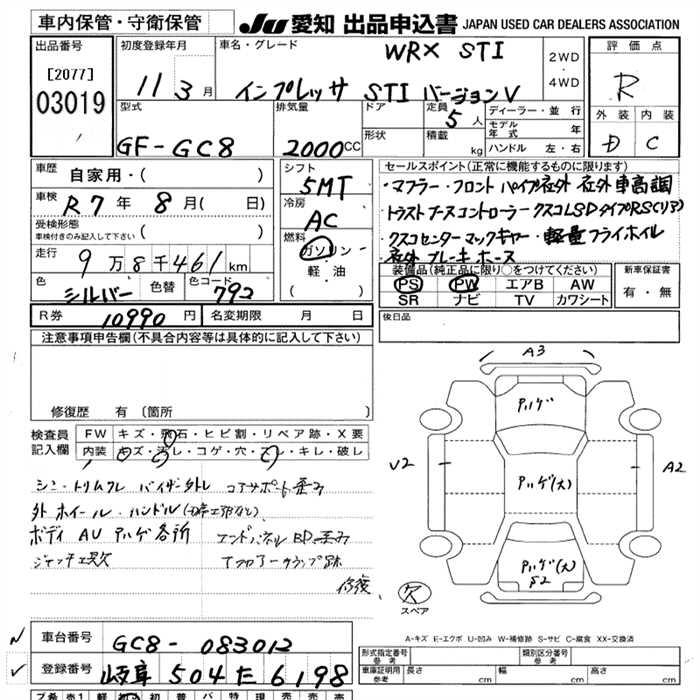 車内保管・守衛保管
JU 愛知 出品申込書 JAPAN USED CAR DEALERS ASSOCIATION
出品番号
[2077]
03019
初度登録年月
11 3月
車名・グレード
WRX STI
インプレッサ STI バージョンV
2WD
・
4WD
評価点
R
外装 内装
D C
型式
GF-GC8
排気量
2000CC
ドア
形状
定員 5人
積載 kg
ディーラー・並行
モデル年式 年
ハンドル 左・右
車歴 自家用・( )
車検 R7年 8月( 日)
受検形態
車検付きのみ記入して下さい ( )
走行 9万8千461km
色 シルバー 色替 色コード 792
シフト
5MT
冷房
AC
燃料
ガソリン
・
軽油
( )
R券 10990円 名変期限 月 日
セールスポイント(正常に機能するものに限ります)
・マフラー・フロントパイプ社外 社外車高調
・トラストブースコントローラー クスコLSDタイプRS(リア)
・クスコセンターマックギヤー・軽量フライホイル
社外ブレーキホース
装備品(純正品に限り○をつけてください)
PS PW エアB AW
SR ナビ TV カワシート
新車保証書
有・無
後日品
注意事項申告欄(不具合内容等は具体的に記入して下さい)
修復歴 有 〔箇所
検査員記入欄
FW キズ・飛石・ヒビ割・リペア跡・X要
内装 キズ・汚レ・コゲ・穴・スレ・キレ・破レ
シミ・トリムスレ バイザー外レ コアサポート歪み
外ホイール・ハンドル
ボディ AU アルゲ各所 エンドパネル BP歪み
ジャッキ工具欠
修復
A3
アルゲ
V2
アルゲ(大)
A2
アルゲ(大)
欠
スペア
A-キズ E-エクボ U-凹み W-補修跡 S-サビ C-腐食 XX-交換済
車台番号 GC8-083012
登録番号 岐阜 504 た 6198
形式指定番号
参考
類別区分番号
参考
車庫証明用
参考
長さ cm 幅 cm 高さ cm